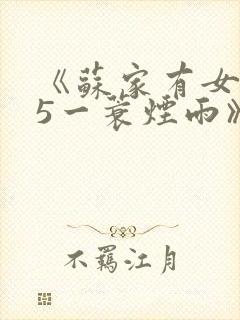 《蘇家有女
5一蓑煙雨》
不羈江月